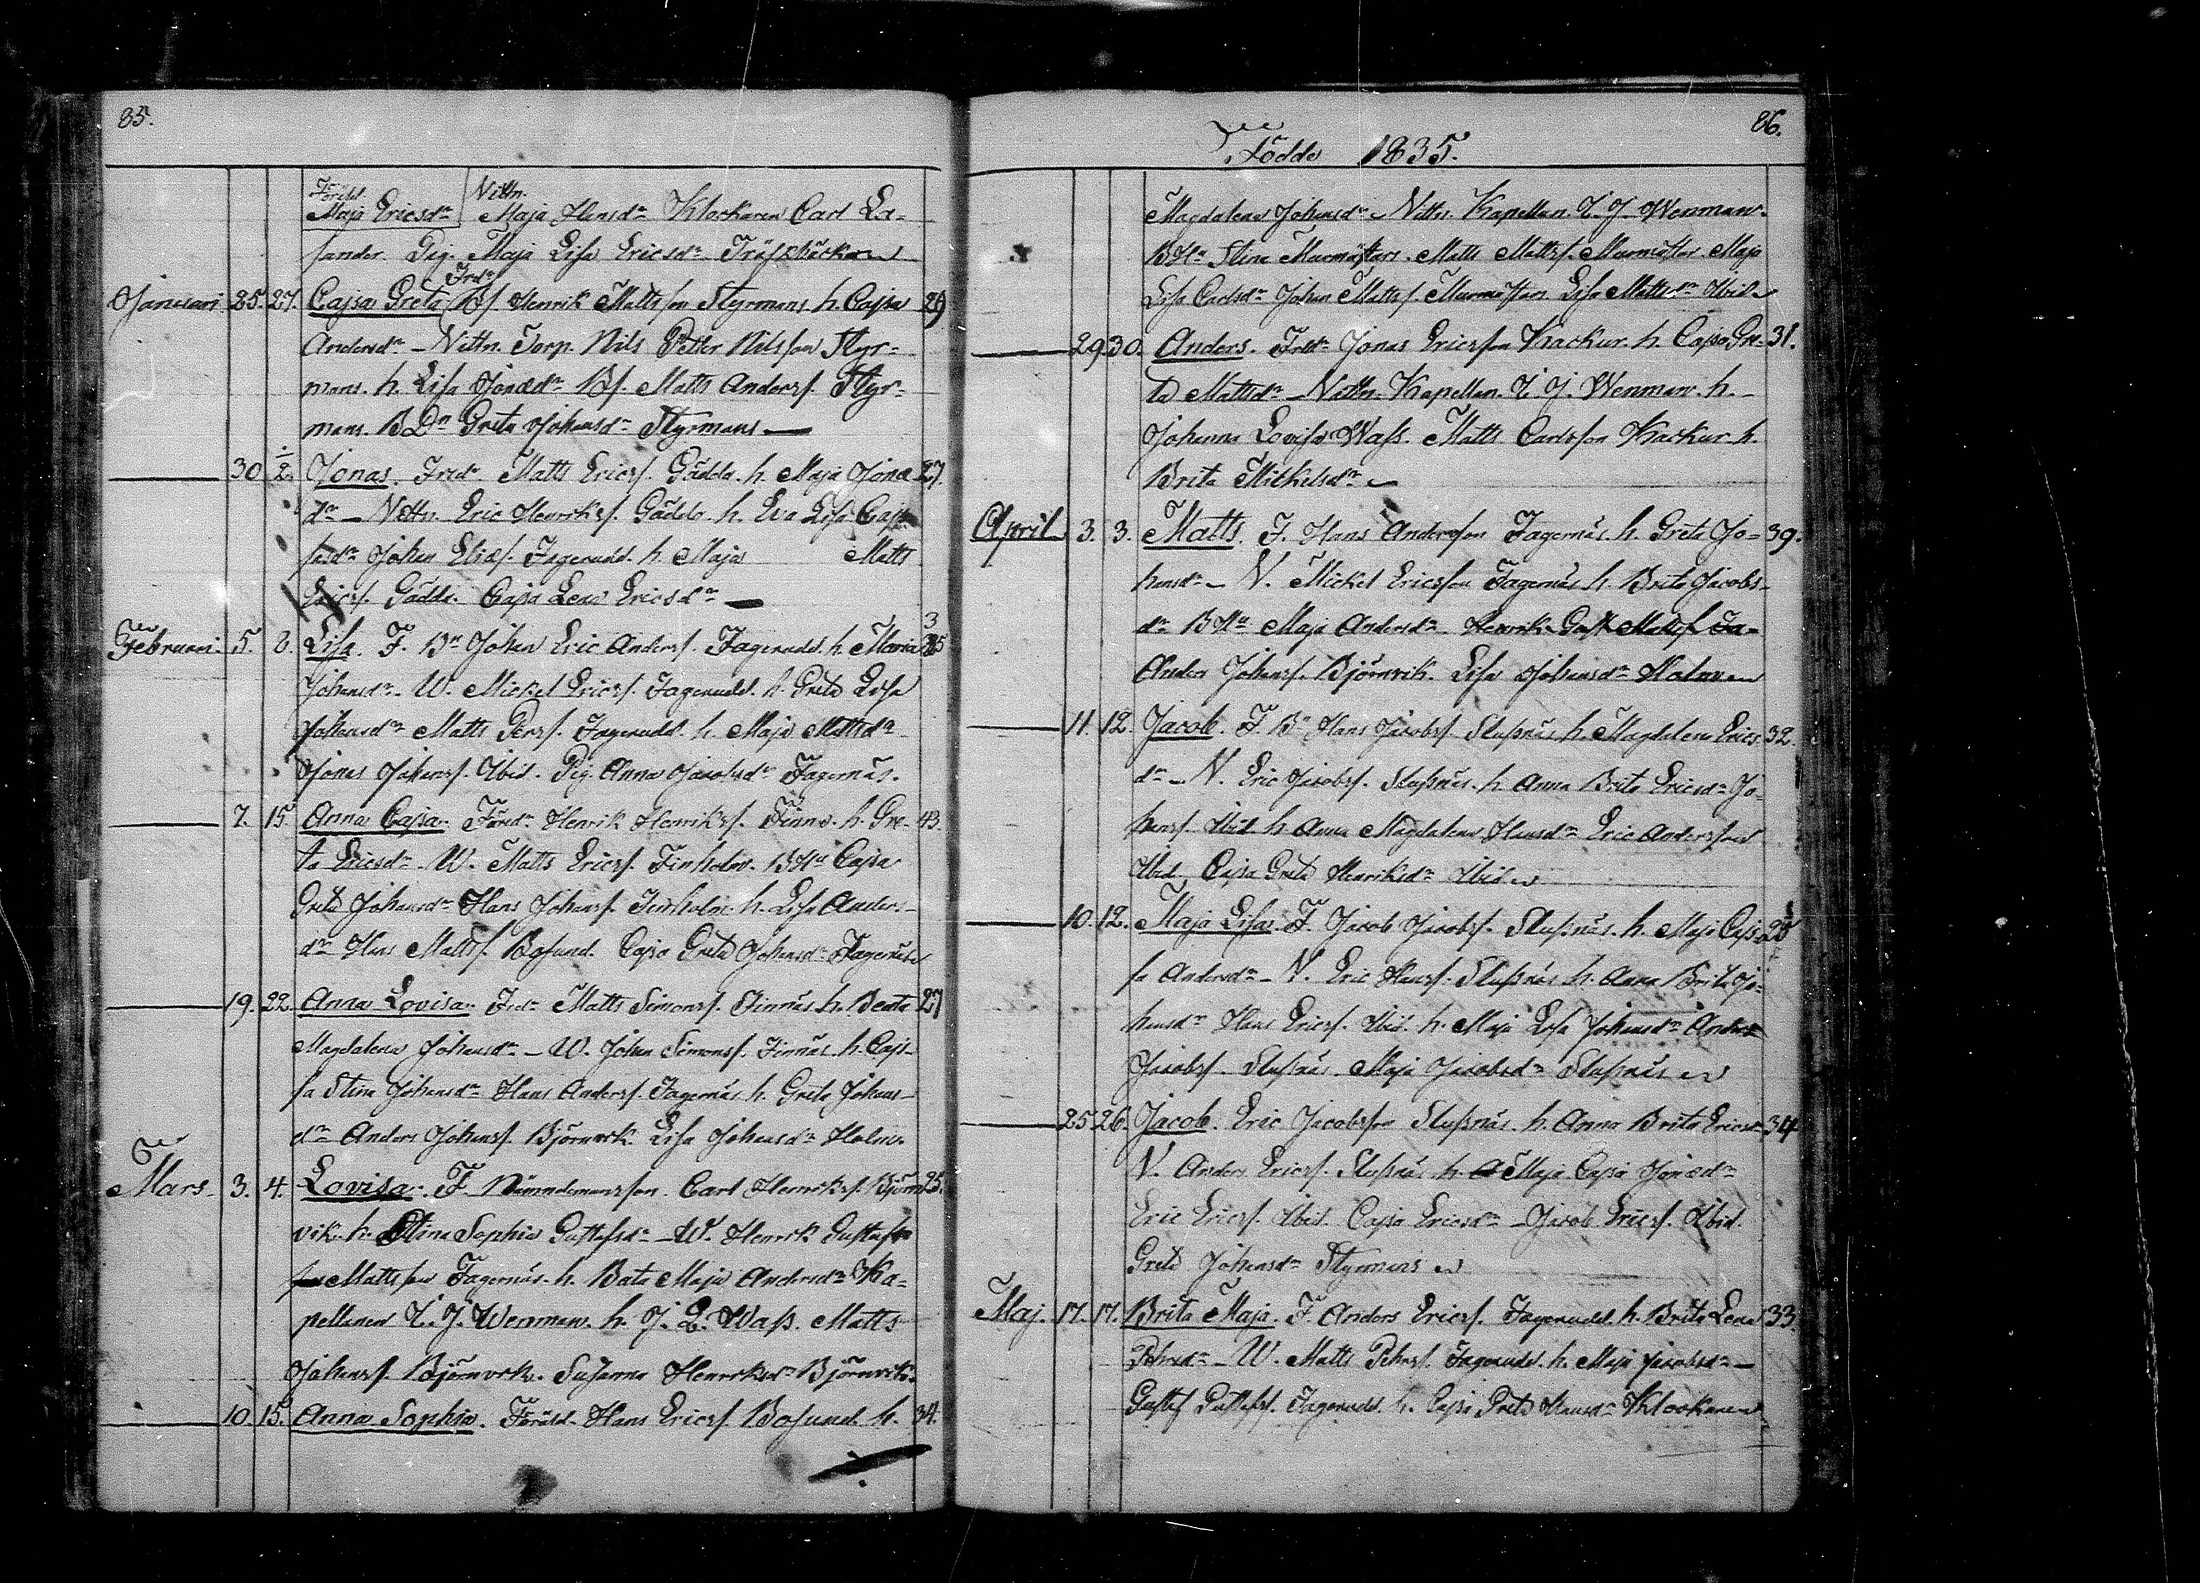 85.
Föräld. Vittn.
Maja Ericsdr Maja Hansdr Klockaren Carl La=
sander Pig. Maja Lisa Ericsdr Träskbäcken
Januari 25. 27. Cajsa Greta Frdr Bs. Henrik Mattsson Styrmans. h. Cajsa 29
Andersdr – Vittn. Torp. Nils Petter Nilsson Styr=
mans. h. Lisa Jonædr Bs. Matts Anders. Styr=
mans. BDn Greta Johansdr Styrmans —
30 2. Jonas. Frdr Matts Erics. Gädda. h. Maja Jonæ 27.
dr – Vittn. Eric Henriks. Gädda. h. Eva Lisa Caj
Johan Elias. Fagerudd. h. Maja Matts
Erics. Gädda. Cajsa Lena Ericsdr —
Februari. 5. 8. Lisa. F. Bn Johan Eric Anders. Fagerudd. h. Maria 35
Johansdr – W. Mickel Erics. Fagerudd. h. Greta Lisa
Johansdr Matts Pers. Fagerudd. h. Maja Mattsdr
Jonas Johans. Ibid. Pig. Anna Jacobsdr Fagernäs.
7. 15. Anna Cajsa. Förädr Henrik Henriks. Finno. h. Gre- 43.
ta Ericsdr – W. Matts Erics. Finholm. BHu Cajsa
Greta Johansdr Hans Johans. Finholm. h. Lisa Anders-
dr Hans Matts. Bosund. Cajsa Greta Johansdr Fagernäs
19. 22. Anna Lovisa. Frdr Matts Simons. Finnäs. h. Beata 27
Magdalena Johansdr – W. Johan Simons. Finnäs. h. Caj-
sa Stina Johansdr Hans Anders. Fagernäs h. Greta Johans-
dr Anders Johans. Björnvik. Lisa Johansdr Holm.
Mars. 3. 4. Lovisa. F. Nämndemansson. Carl Henriks. Björn 25.
vik. h. Stina Sophia Gustafsdr – W. Henrik Gustaf
Mattsson Fagernäs. h. Bata Maja Andersdr Ka=
pellanen I. J. Wenman. h. J. L. Wass. Matts
Johans. Björnvik. Susanna Henriksdr Björnvik.
10. 15. Anna Sophia. Föräld. Hans Erics. Bosund. h. 34.
86.
Födde 1835.
Magdalena Johansdr – Vittn. Kapellan. I. J. Wenman.
BHu Stina Murmästars. Matts Matts. Murmästar. Maja
Lisa Carlsdr Johan Matts. Murmästars. Lisa Mattsdr Ibid
29. 30. Anders. Frdr Jonas Ericsson Kackur. h. Cajsa Gre- 31.
ta Mattsdr – Vittn. Kapellan. I. J. Wenman. h. –
Johanna Lovisa Wass. Matts Carlsson Kackur. h.
Brita Mickelsdr
April 3. 3. Matts. F. Hans Andersson Fagernäs. h. Greta Jo= 39.
hansdr – V. Mickel Ericsson Fagernäs h. Brita Jacobs-
dr BHu Maja Andersdr Henrik Gust Matts. Fa=
Anders Johans. Björnvik. Lisa Johansdr Holm
11. 12. Jacob. F. Bn Hans Jacobs. Slussnäs h. Magdalena Erics 32.
dr – V. Eric Jacobs. Slussnäs. h. Anna Brita Ericsdr Jo-
hans. Ibid. h. Anna Magdalena Hansdr Eric Andersson
Ibid. Cajsa Greta Henriksdr Ibid
10. 12. Maja Lisa. F. Jacob Jacobs. Slussnäs. h. Maja Caj- 25
sa Andersdr – V. Eric Hans. Slussnäs h. Anna Brita Jo-
hansdr Hans Erics. Ibid. h. Maja Lisa Johansdr Anders
Jacobs. Slussnäs. Maja Jacobsdr Slussnäs
25 26. Jacob. Eric Jacobsson Slussnäs. h. Anna Brita Ericsdr 34
V. Anders Erics. Slussnäs h. Maja Cajsa Jonædr
Eric Erics. Ibid. Cajsa Ericsdr – Jacob Erics. Ibid.
Greta Johansdr Styrmans
Maj. 17. 17. Brita Maja. F. Anders Erics. Fagerudd. h. Brita Lena 33.
Pehrsdr – W. Matts Pehrs. Fagerudd. h. Maja Jacobsdr –
Gustaf Gustafs. Fagerudd. h. Cajsa Greta Hansdr Klockaren